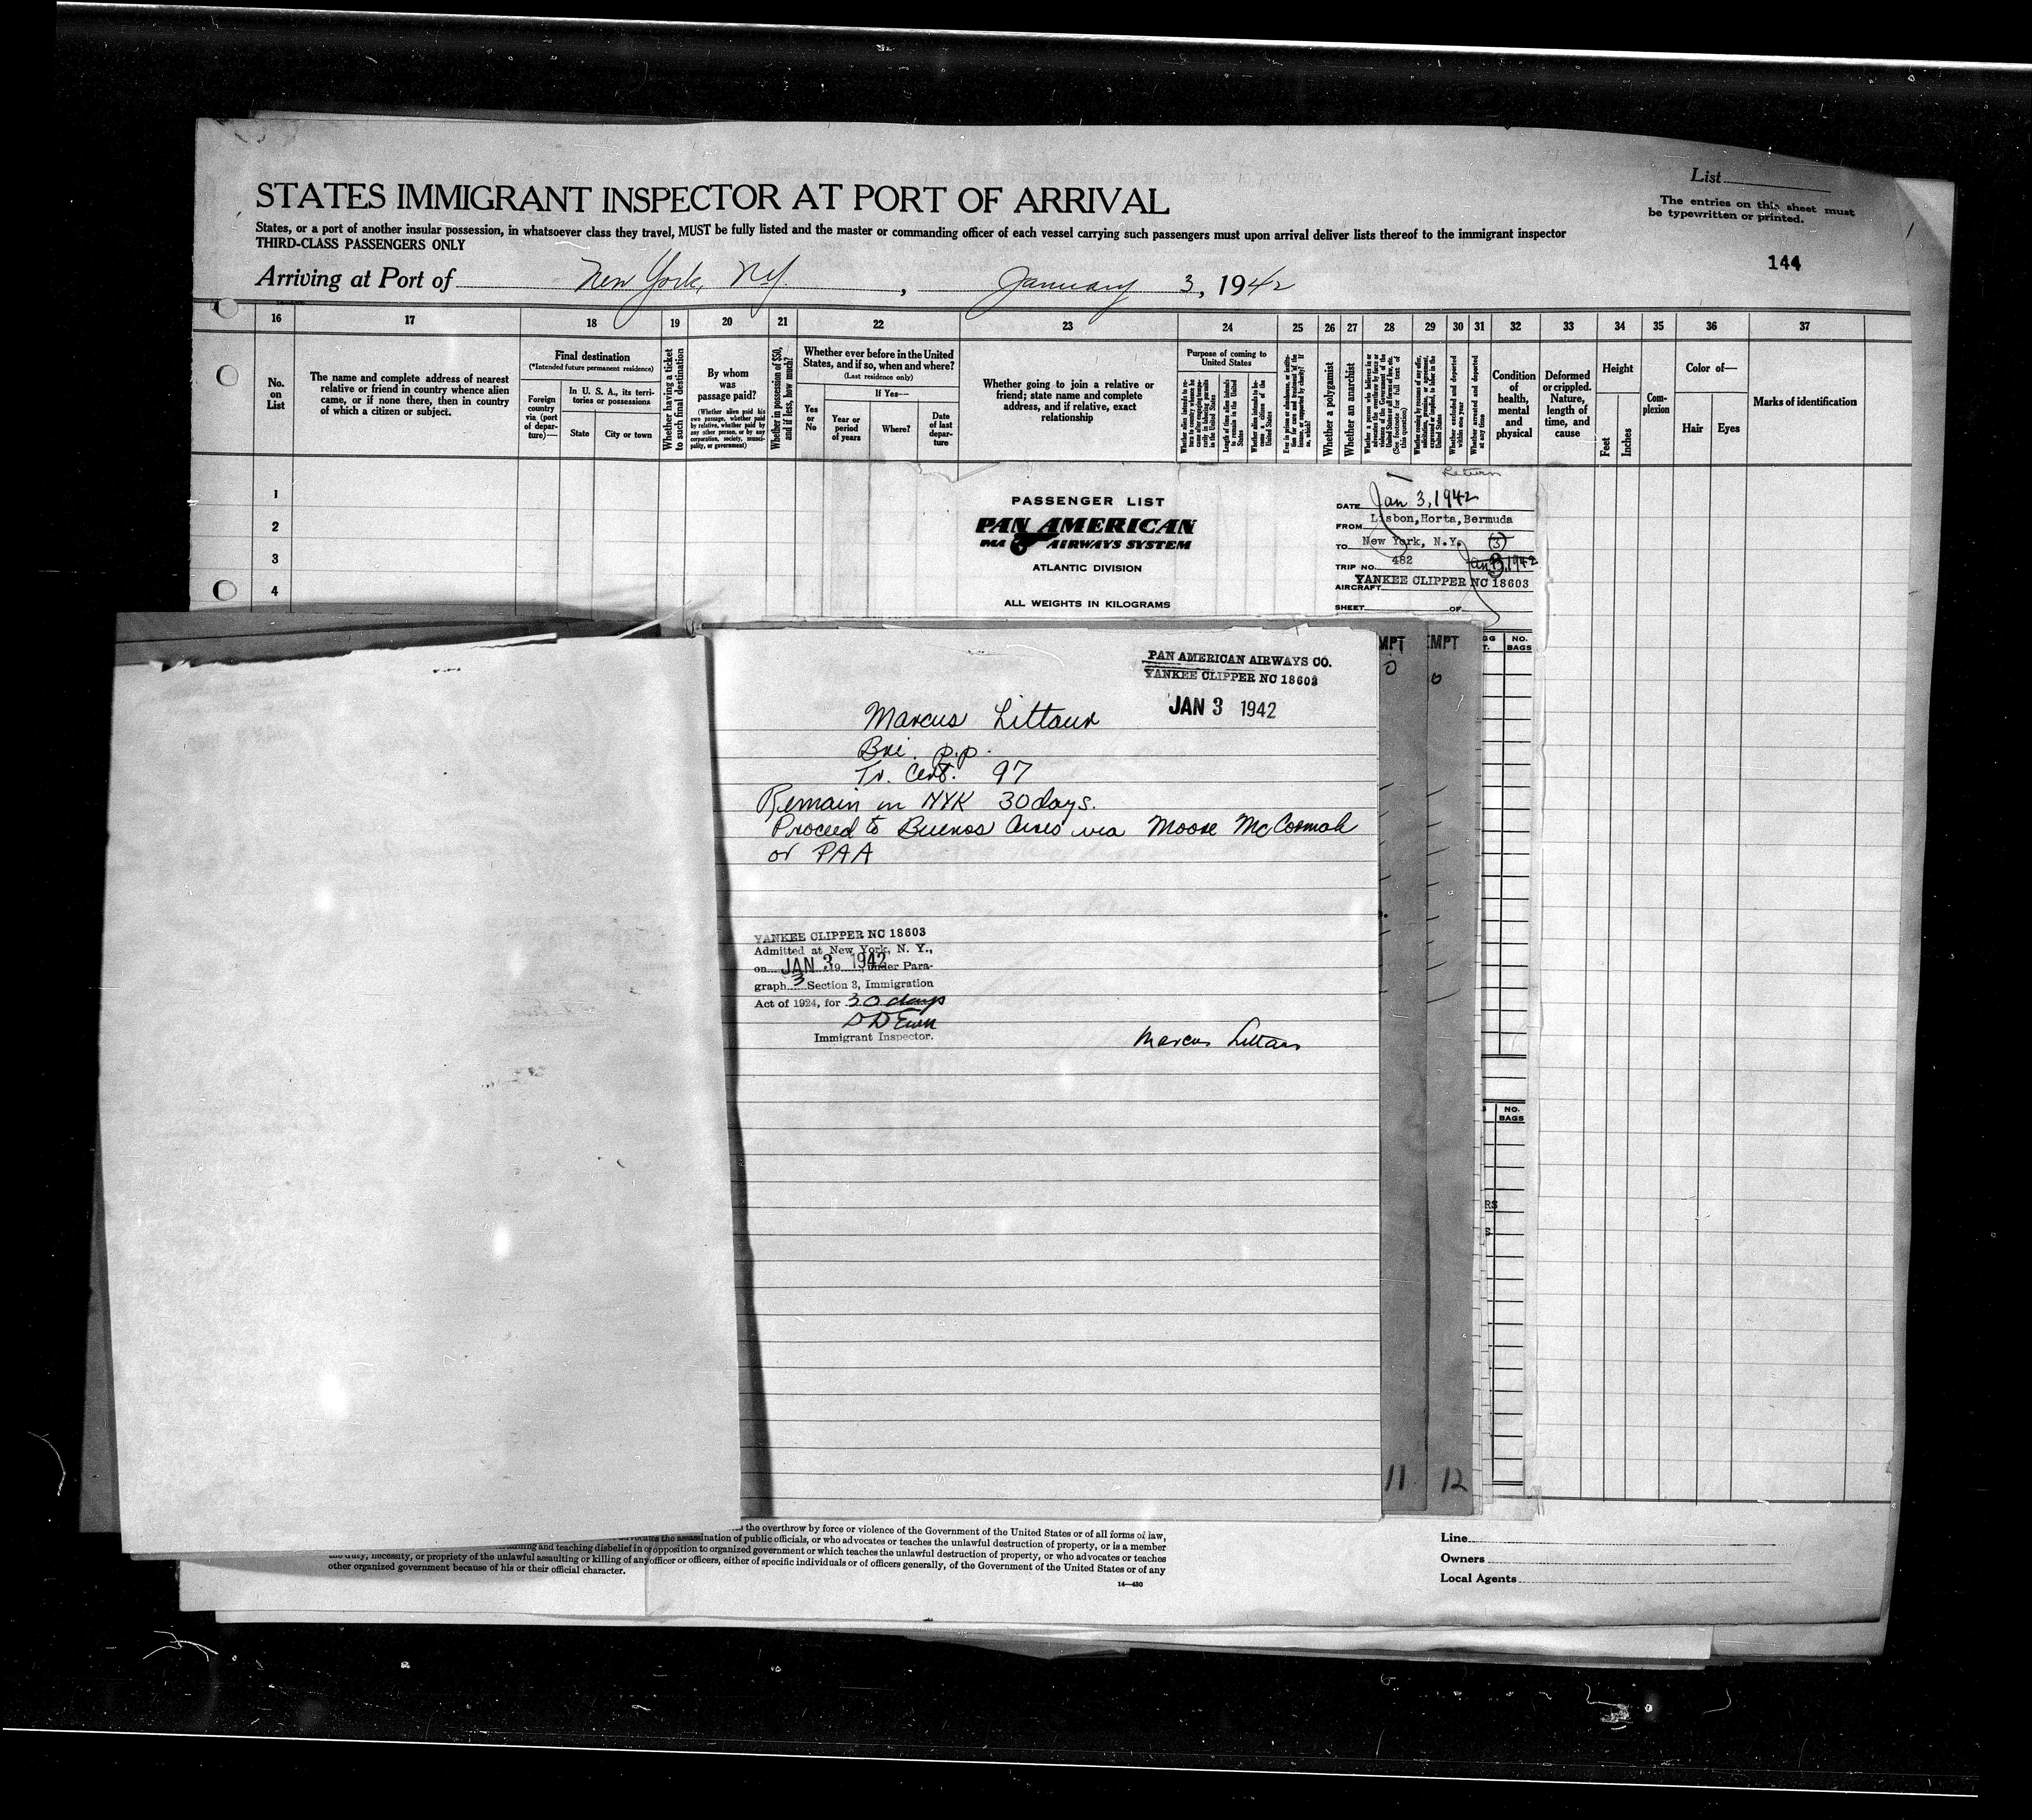 List
The entries on this sheet must
be typewritten or printed.
STATES IMMIGRANT INSPECTOR AT PORT OF ARRIVAL
States, or a port of another insular possession, in whatsoever class they travel, MUST be fully listed and the master or commanding officer of each vessel carrying such passengers must upon arrival deliver lists thereof to the immigrant inspector
THIRD-CLASS PASSENGERS ONLY
144
Arriving at Port of New York, N.Y. , January 3, 1942
16 17 18 19 20 21 22 23 24 25 26 27 28 29 30 31 32 33 34 35 36 37
No.
on
List
The name and complete address of nearest
relative or friend in country whence alien
came, or if none there, then in country
of which a citizen or subject.
Final destination
(*Intended future permanent residence)
Foreign
country
via (port
of depar-
ture)—
In U. S. A., its terri-
tories or possessions
State
City or town
Whether having a ticket
to such final destination
By whom
was
passage paid?
(Whether alien paid his
own passage, whether paid
by relative, whether paid by
any other person, or by any
corporation, society, munici-
pality, or government)
Whether in possession of $50,
and if less, how much?
Whether ever before in the United
States, and if so, when and where?
(Last residence only)
Yes
or
No
If Yes—
Year or
period
of years
Where?
Date
of last
depar-
ture
Whether going to join a relative or
friend; state name and complete
address, and if relative, exact
relationship
Purpose of coming to
United States
Length of time alien intends
to remain in the United
States
Whether a polygamist
Whether an anarchist
Whether excluded and deported
within one year
Whether arrested and deported
at any time
Condition
of
health,
mental
and
physical
Deformed
or crippled.
Nature,
length of
time, and
cause
Height
Feet
Inches
Com-
plexion
Color of—
Hair
Eyes
Marks of identification
1
2
3
4
PASSENGER LIST
PAN AMERICAN
PAA AIRWAYS SYSTEM
ATLANTIC DIVISION
ALL WEIGHTS IN KILOGRAMS
Return
DATE Jan 3, 1942
FROM Lisbon, Horta, Bermuda
TO New York, N.Y. (3)
TRIP NO. 482 Jan 3, 1942
AIRCRAFT YANKEE CLIPPER NC 18603
SHEET OF
MPT
EMPT
0
0
NO.
BAGS
PAN AMERICAN AIRWAYS CO.
YANKEE CLIPPER NC 18603
JAN 3 1942
Marcus Littaur
Bri. p.p.
Tr. Cert. 97
Remain in NYK 30 days.
Proceed to Buenos Aires via Moore McCormak
or PAA
YANKEE CLIPPER NC 18603
Admitted at New York, N. Y.,
on JAN 3 1942 19 , under Para-
graph 3 Section 3, Immigration
Act of 1924, for 30 days
Immigrant Inspector.
Marcus Littaur
NO.
BAGS
RS
S
11 12
the overthrow by force or violence of the Government of the United States or of all forms of law,
advocates the assassination of public officials, or who advocates or teaches the unlawful destruction of property, or is a member
and teaching disbelief in or opposition to organized government or which teaches the unlawful destruction of property, or who advocates or teaches
the duty, necessity, or propriety of the unlawful assaulting or killing of any officer or officers, either of specific individuals or of officers generally, of the Government of the United States or of any
other organized government because of his or their official character.
14—430
Line
Owners
Local Agents